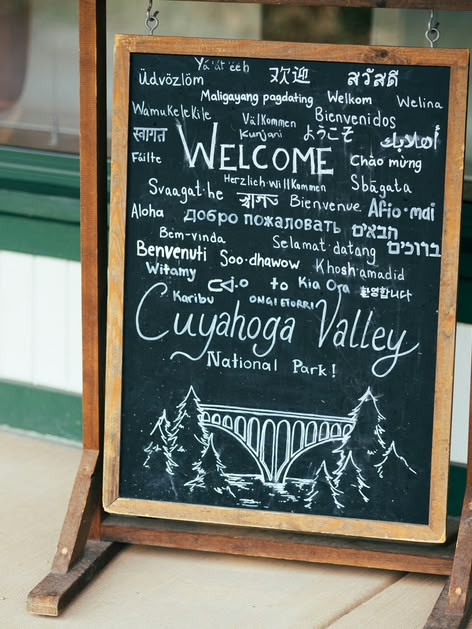 Yá'át'ééh
Üdvözlöm 欢迎 สวัสดี
Maligayang pagdating Welkom Welina
Wamukelekile Välkommen Bienvenidos
स्वागत Kunjani ようこそ أهلا بك
WELCOME
Fáilte Chào mừng
Herzlich willkommen Sbāgata
Svaagat·he Bienvenue Afio·mai
Aloha добро пожаловать הבאים
Bem-vinda Selamat·datang ברוכים
Benvenuti Soo·dhawow Khosh·amadid
Witamy to Kia Ora 환영합니다
Karibu ONGI ETORRI
Cuyahoga Valley
National Park!